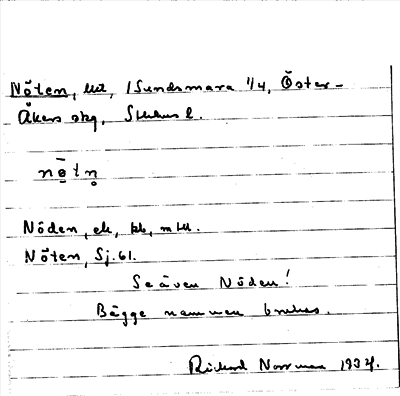 Nöten, lht, /Sundsmara 1/4, Öster-
Åkers skg, Sthlms l.
nø̄tn̥
Nöden, ek, kb, mtl.
Nöten, Sj. 61.
Se även Nöden!
Bägge namnen brukas.
Rickard Norrman 1934.